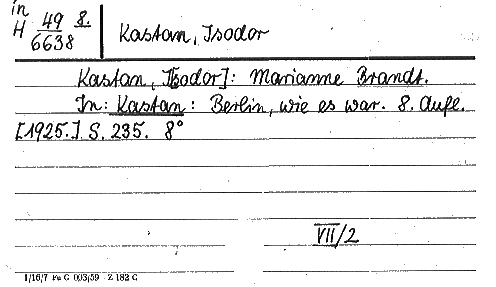 in
H 49 8.
6638
Kastan, Isodor
Kastan, I[sodor]: Marianne Brandt.
In: Kastan: Berlin, wie es war. 8. Aufl.
[1925.] S. 235. 8°
VII/2
1/16/7 Fu G 003/59 Z 182 C